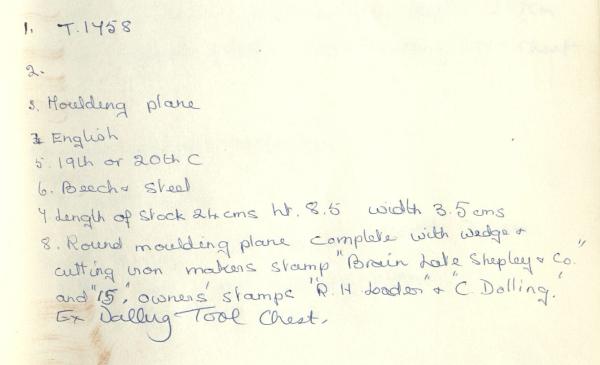 1. T.1458
2.
3. Moulding plane
4. English
5. 19th or 20th C
6. Beech & steel
7 Length of stock 24cms ht. 8.5 width 3.5 cms
8. Round moulding plane complete with wedge &
cutting iron makers stamp "Brain Late Shepley & Co."
and "15", owners' stamps "R. H. Loader" & "C. Dolling."
Ex Tool Chest.